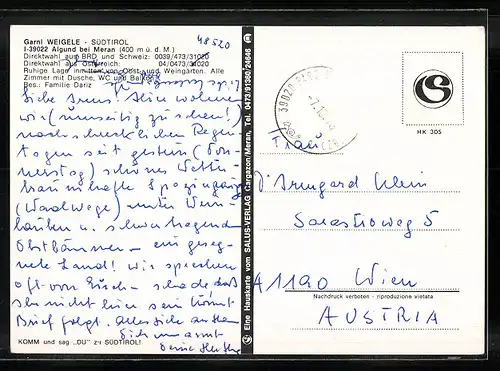 Garni WEIGELE - SÜDTIROL
I-39022 Algund bei Meran (400 m ü. d. M.)
Direktwahl aus BRD und Schweiz: 0039/473/31020
Direktwahl aus Österreich: 04/0473/31020
Ruhige Lage inmitten von Obst- und Weingärten. Alle
Zimmer mit Dusche, WC und Balkon.
Bes.: Familie Dariz
48520
Liebe Irms! Also wohnen
wir (umseitig zu sehen!)
nach schrecklichen Regen-
tagen seit gestern (Don-
nerstag) schönes Wetter
traumhafte Spaziergänge
(Waalwege) unter Wein-
lauben u. schwertragenden
Obstbäumen - ein geseg-
netes Land! Wir sprechen
oft von Euch - schade daß
Ihr nicht hier sein könnt
Brief folgt. Alles Liebe
Dich umarmt
Deine
KOMM und sag „DU" zu SÜDTIROL!
Eine Hauskarte vom SALUS-VERLAG Cargazon/Meran, Tel. 0473/91080/24646
39020
HK 305
Frau
Irmgard Klein
Sarastroweg 5
A 1190 Wien
Nachdruck verboten - riproduzione vietata
AUSTRIA